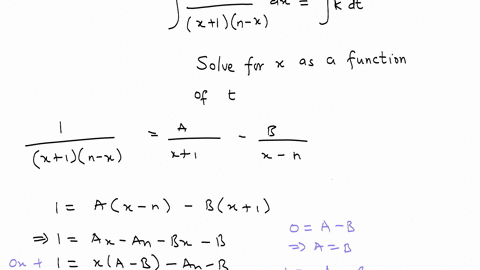 ∫ 1/((x+1)(n-x)) dx = ∫ k dt
Solve for x as a function
of t
1/((x+1)(n-x)) = A/(x+1) - B/(x-n)
1 = A(x-n) - B(x+1)
0 = A-B
⇒ 1 = Ax - An - Bx - B
⇒ A = B
0x + 1 = x(A-B) - An - B